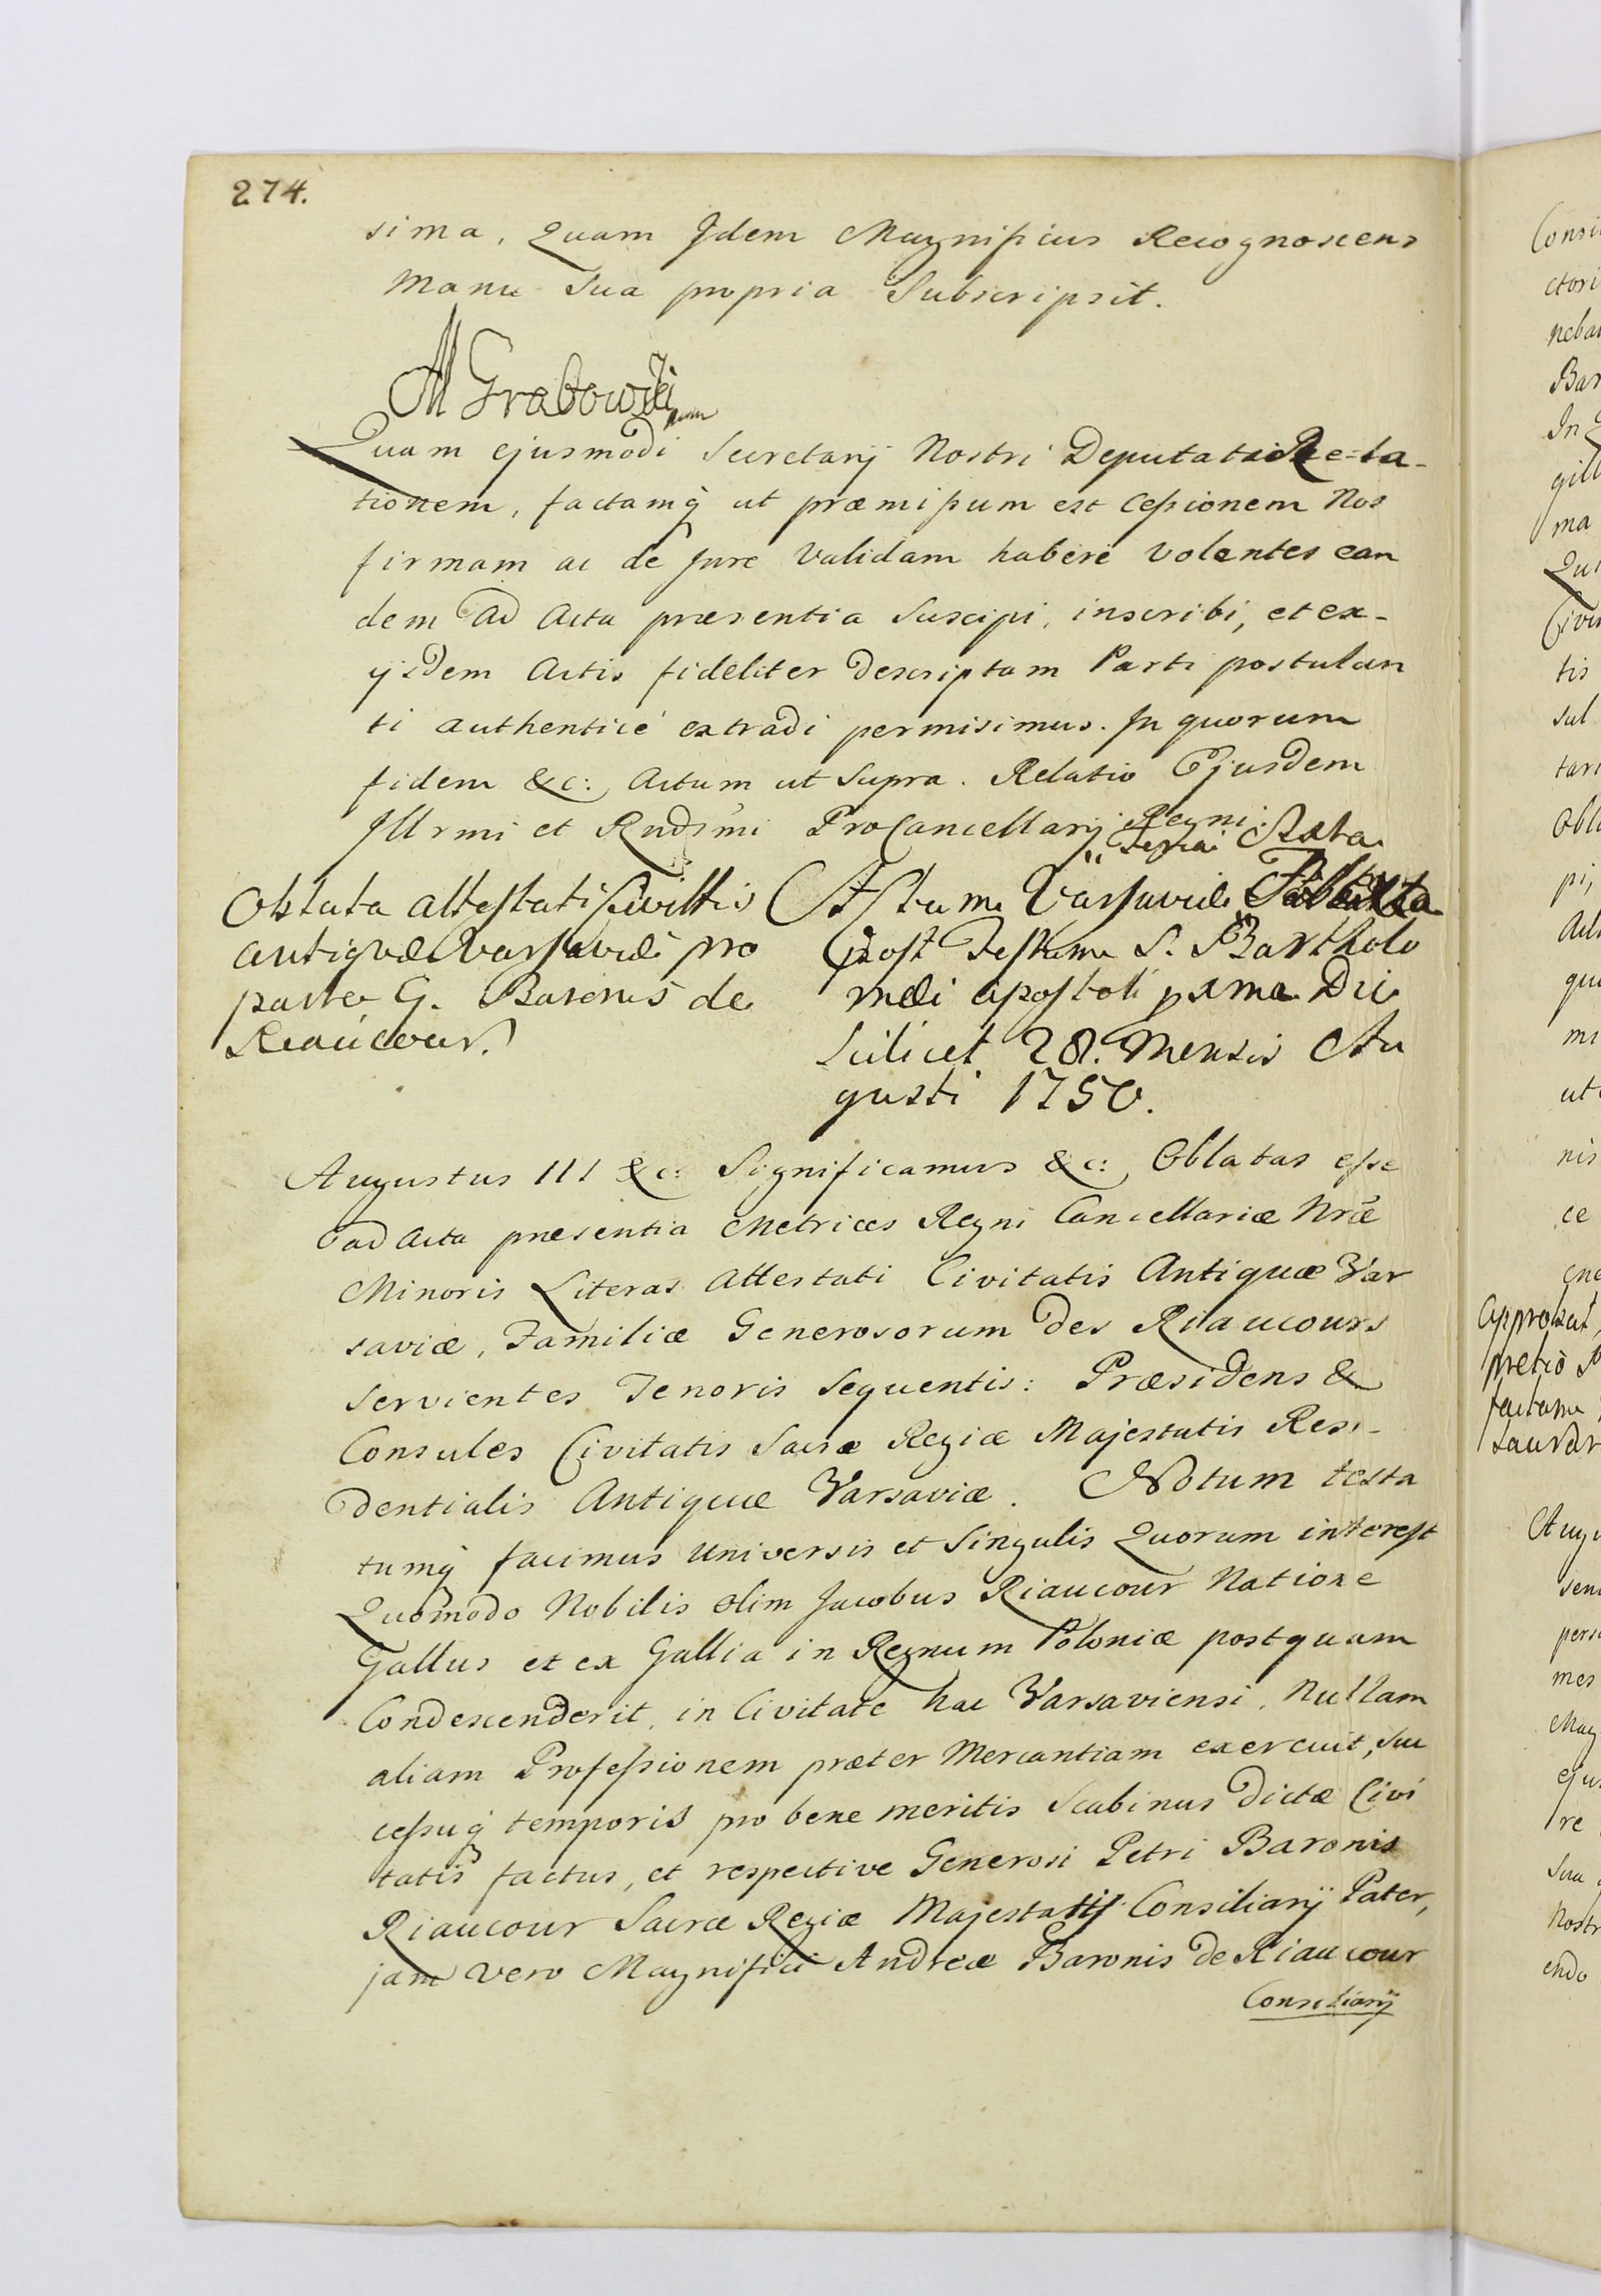 274.
sima, Quam Idem Magnificus Recognoscens
Manu Sua propria Subscripsit.
M Grabowski
mm
Quam ejusmodi Secretarij Nostri Deputati Rela-
tionem, factamq̃ ut præmissum est Cessionem Nos
firmam ac de Jure Validam habere Volentes ean
dem Ad Acta præsentia Suscipi, inscribi, et ex-
ijsdem Actis fideliter Descriptam Parti postulan
ti authenticè extradi permisimus. In quorum
fidem &c: Actum ut Supra. Relatio Ejusdem
Illrmi et Rndsmi ProCancellarij Regni.
Oblata attestati Civittis
antiquæ Varsaviæ pro
parte G. Baronis de
Riaucour.
Feria Sexta
Actum Varsaviæ
post Festum S. Bartholo
mæi apostoli pxma Die
Scilicet 28. Mensis Au
gusti 1750.
Augustus III &c: Significamus &c: Oblatas esse
ad Acta præsentia Metrices Regni Cancellariæ Nræ
Minoris Literas Attestati Civitatis Antiquæ Var
saviæ, Familiæ Generosorum des Riaucours
servientes Tenoris Sequentis: Præsidens &
Consules Civitatis Sacræ Regiæ Majestatis Resi-
dentialis Antiquæ Varsaviæ. Notum testa
tumq̃ facimus Universis et Singulis Quorum interest
Quomodo Nobilis olim Jacobus Riaucour Natione
Gallus et ex Gallia in Regnum Poloniæ postquam
Condescenderit, in Civitate hac Varsaviensi, Nullam
aliam Professionem præter Mercantiam exercuit, suc
cessuq̃ temporis pro bene meritis Scabinus Dictæ Civi
tatis factus, et respective Generosi Petri Baronis
Riaucour Sacræ Regiæ Majestatis Consiliarij Pater,
jam vero Magnifici Andreæ Baronis De Riaucour
Consiliarij